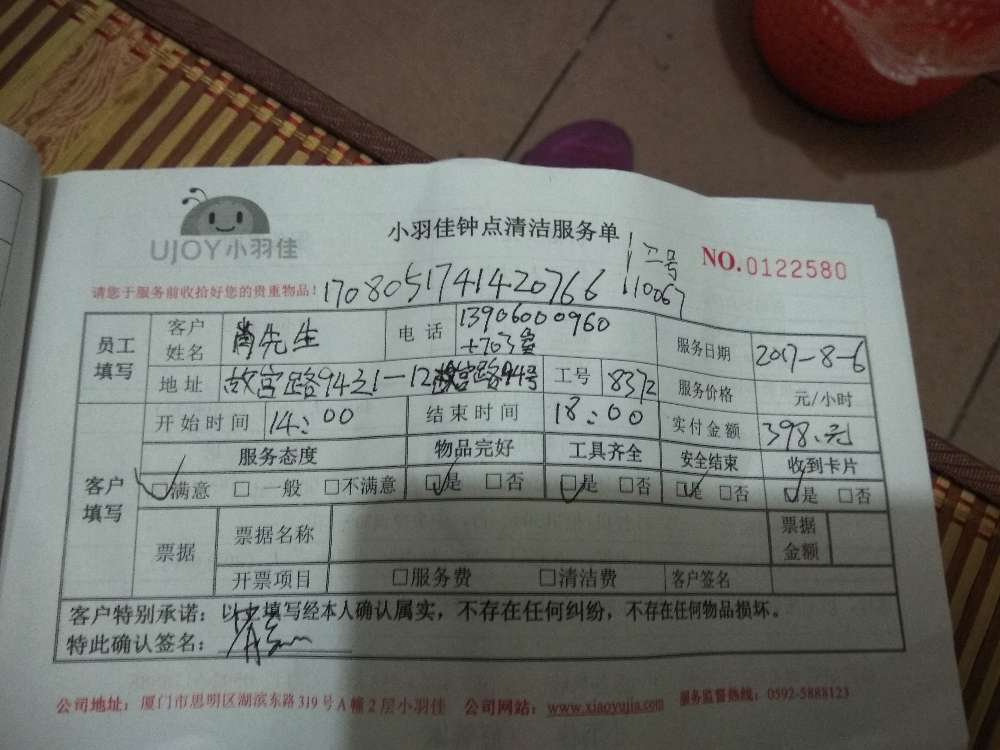 UJOY小羽佳
小羽佳钟点清洁服务单
NO.0122580
请您于服务前收拾好您的贵重物品!
1708051741420766
110067
员工填写
客户姓名
肖先生
电话
13906000960
服务日期
2017-8-6
地址
故宫路94之1-12
工号
8372
服务价格
元/小时
开始时间
14:00
结束时间
18:00
实付金额
398.元
客户填写
服务态度 物品完好 工具齐全 安全结束 收到卡片
□满意 □一般 □不满意 □是 □否 □是 □否 □是 □否 □是 □否
票据
票据名称
票据金额
开票项目 □服务费 □清洁费 客户签名
客户特别承诺:以上填写经本人确认属实,不存在任何纠纷,不存在任何物品损坏。
特此确认签名:
公司地址:厦门市思明区湖滨东路319号A幢2层小羽佳 公司网站:www.xiaoyujia.com 服务监督热线:0592-5888123